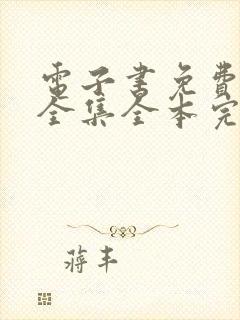 電子書免費
全集全本完
蔣丰